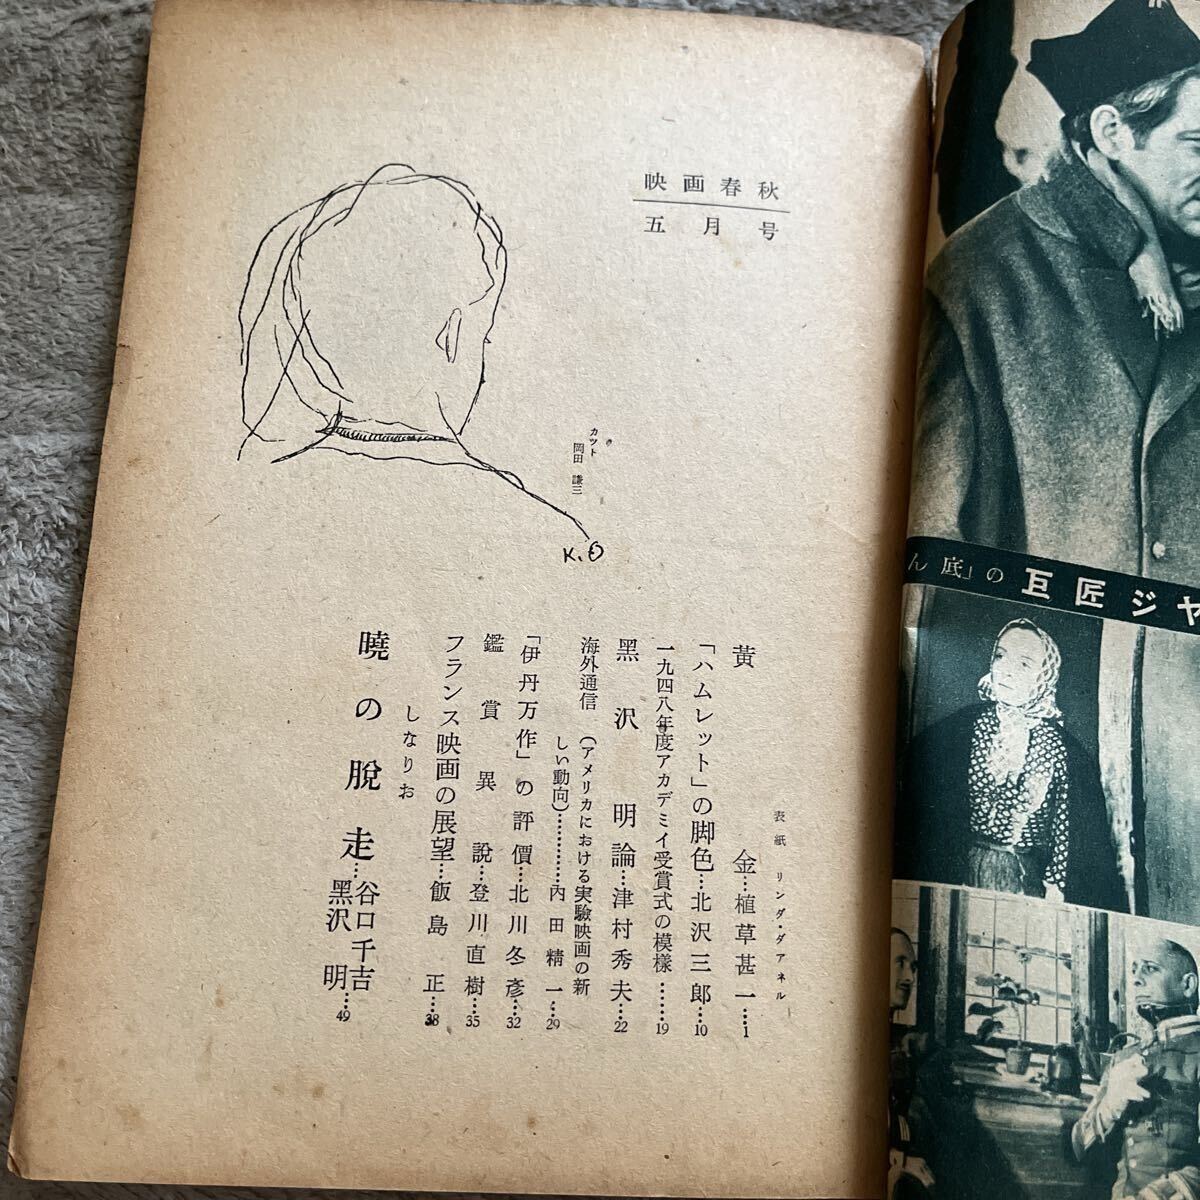 映画春秋
五月号
カツト
岡田謙三
K.O
表紙 リンダ・ダアネル
黄金…植草甚一…1
「ハムレット」の脚色…北沢三郎…10
一九四八年度アカデミイ受賞式の模様……19
黒沢明論…津村秀夫…22
海外通信(アメリカにおける実驗映画の新
しい動向)…………内田精一…29
「伊丹万作」の評價…北川冬彦…32
鑑賞異説…登川直樹…35
フランス映画の展望…飯島正…38
しなりお
曉の脱走…谷口千吉
黒沢明…49
ん底」の巨匠ジヤ